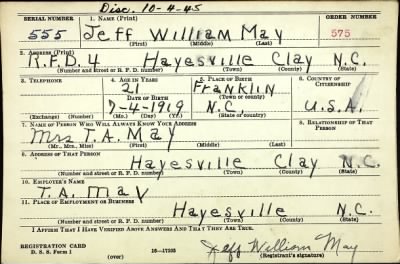 Disc. 10-4-45
SERIAL NUMBER 1. NAME (Print) ORDER NUMBER
555 Jeff William May 575
(First) (Middle) (Last)
2. ADDRESS (Print)
R.F.D. 4 Hayesville Clay N.C.
(Number and street or R. F. D. number) (Town) (County) (State)
3. TELEPHONE 4. AGE IN YEARS 5. PLACE OF BIRTH 6. COUNTRY OF CITIZENSHIP
21 Franklin
DATE OF BIRTH (Town or county)
7-4-1919 N.C. U.S.A.
(Exchange) (Number) (Mo.) (Day) (Yr.) (State or country)
7. NAME OF PERSON WHO WILL ALWAYS KNOW YOUR ADDRESS 8. RELATIONSHIP OF THAT PERSON
Mrs T.A. May
(Mr., Mrs., Miss) (First) (Middle) (Last)
9. ADDRESS OF THAT PERSON
Hayesville Clay N.C.
(Number and street or R. F. D. number) (Town) (County) (State)
10. EMPLOYER'S NAME
T.A. May
11. PLACE OF EMPLOYMENT OR BUSINESS
Hayesville N.C.
(Number and street or R. F. D. number) (Town) (County) (State)
I AFFIRM THAT I HAVE VERIFIED ABOVE ANSWERS AND THAT THEY ARE TRUE.
REGISTRATION CARD
D. S. S. Form 1 16-17105 Jeff William May
(over) (Registrant's signature)